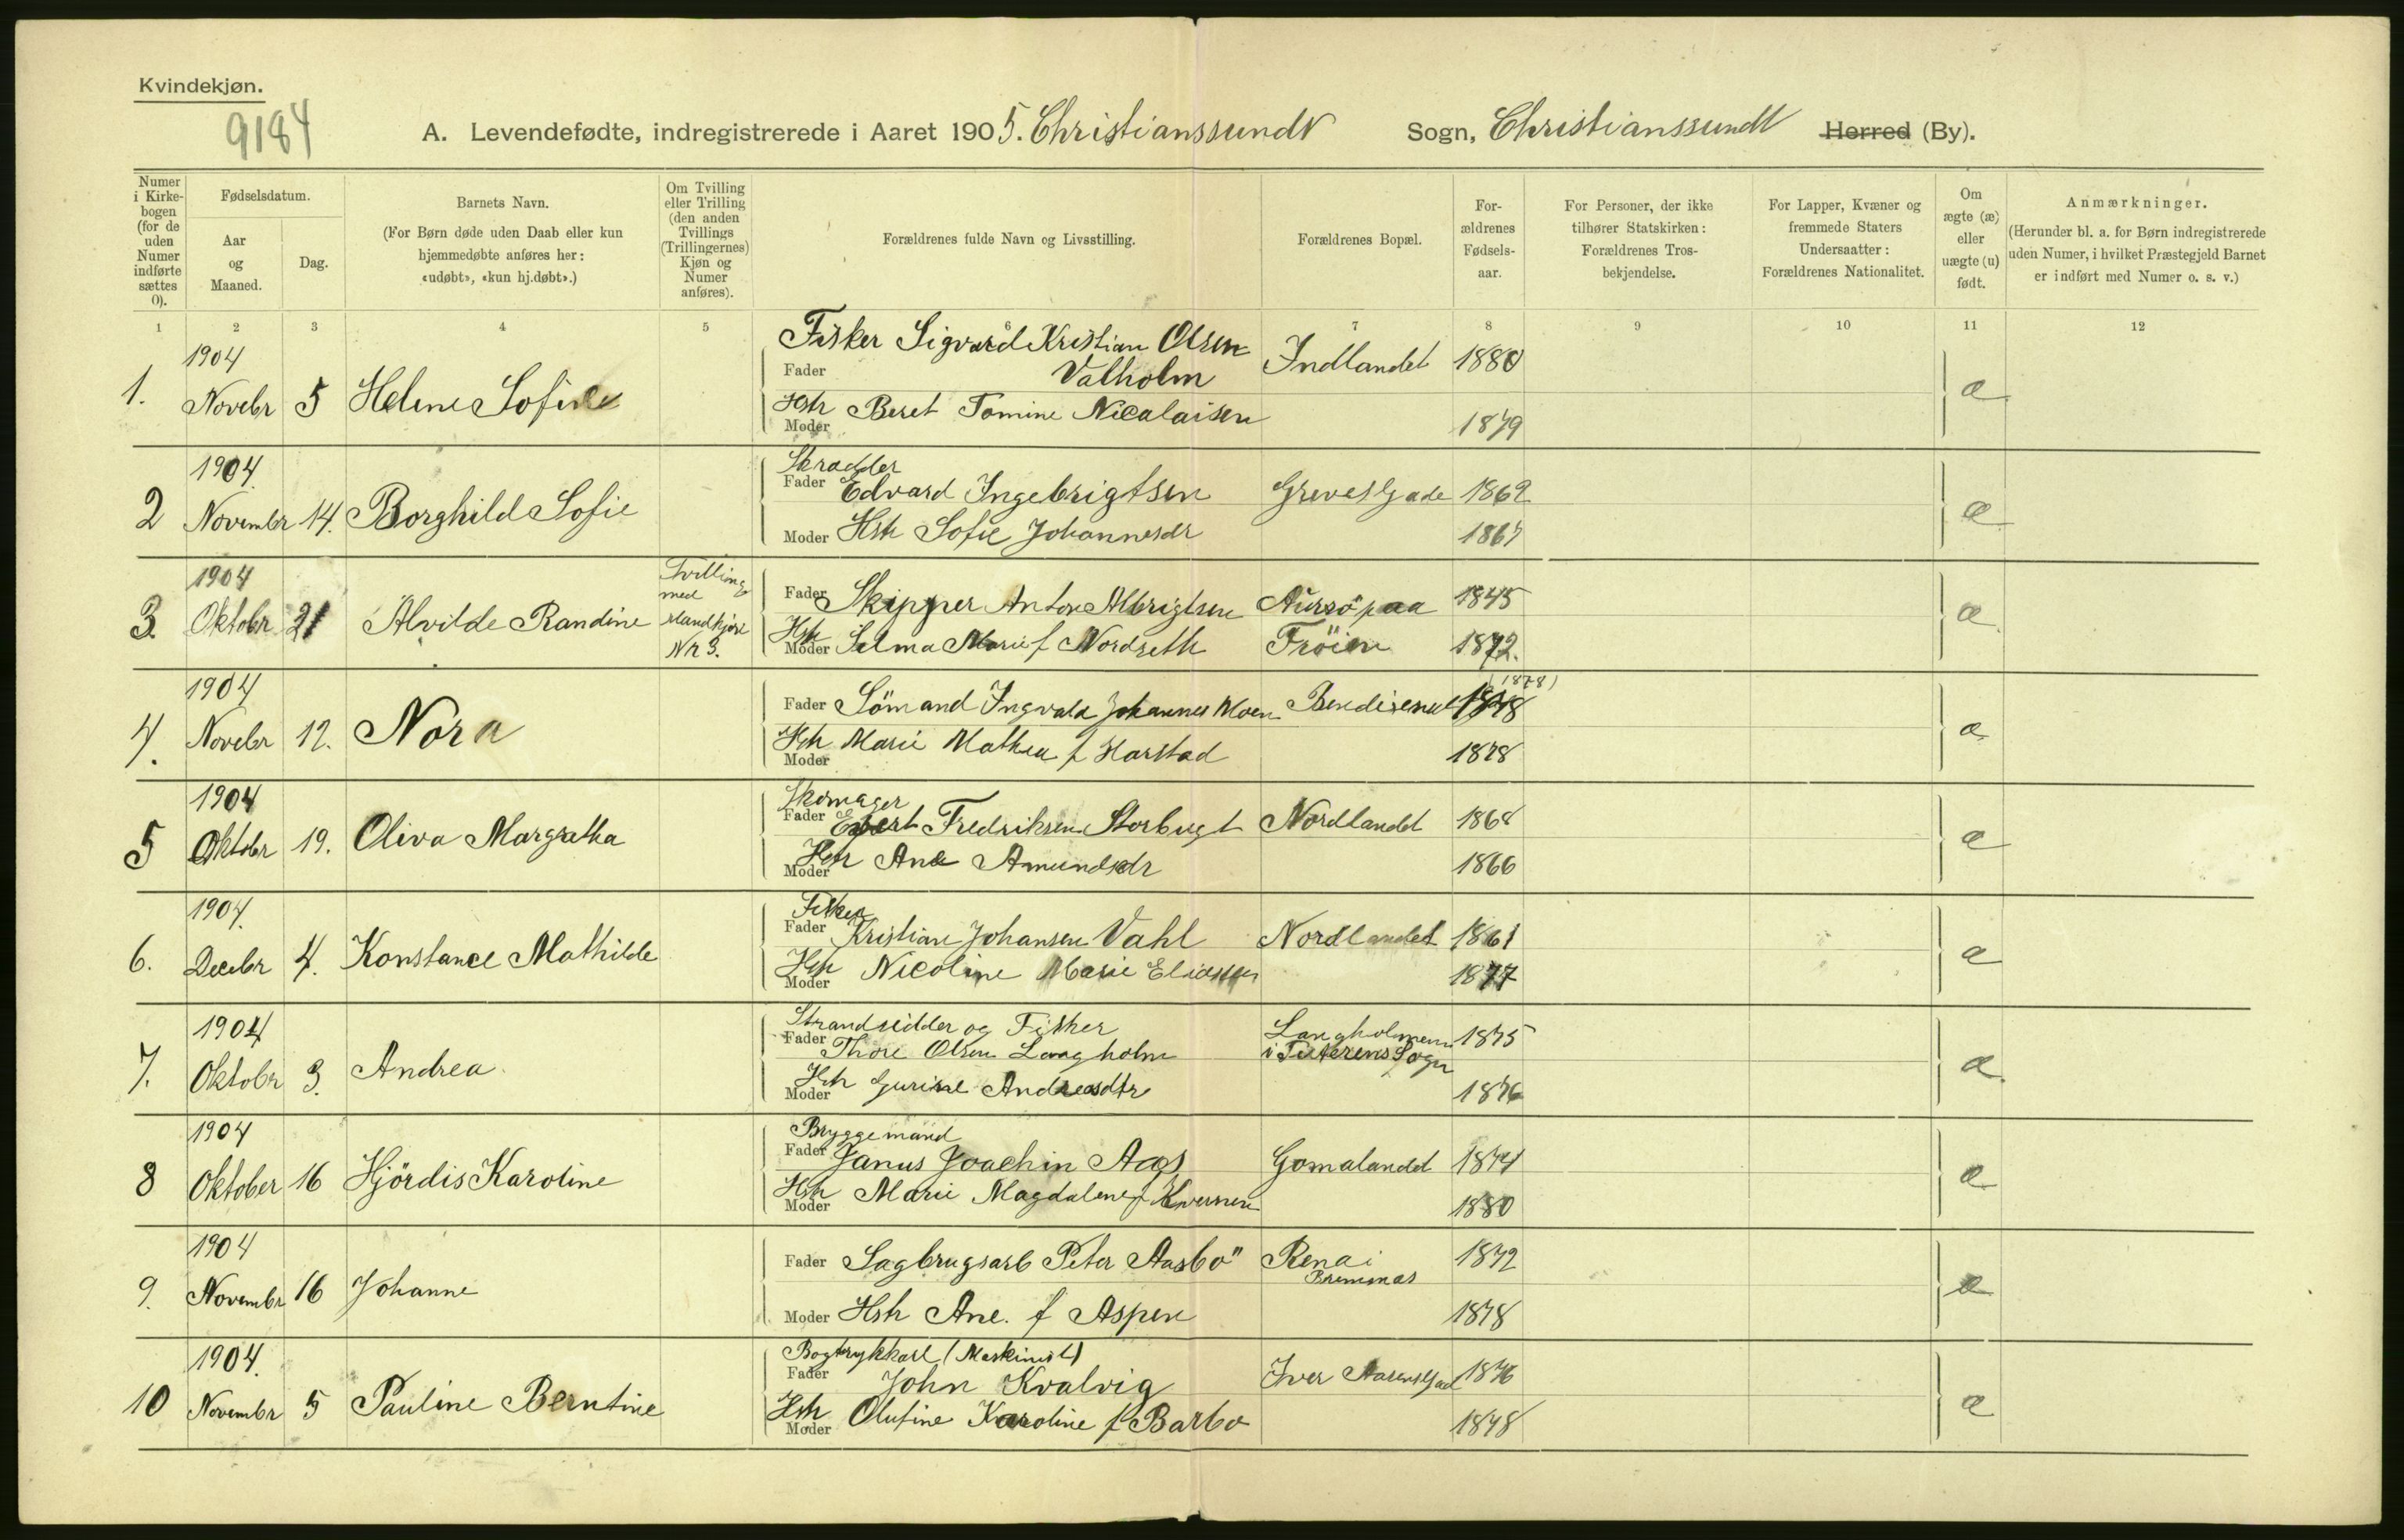 Kvindekjøn.
9184
A. Levendefødte, indregistrerede i Aaret 1905. Christianssunds Sogn, Christianssunds Herred (By).
Numer i Kirkebogen (for de uden Numer indførte sættes 0).
Fødselsdatum.
Aar og Maaned.
Dag.
Barnets Navn.
(For Børn døde uden Daab eller kun hjemmedøbte anføres her: «udøbt», «kun hj.døbt».)
Om Tvilling eller Trilling (den anden Tvillings (Trillingernes) Kjøn og Numer anføres).
Forældrenes fulde Navn og Livsstilling.
Forældrenes Bopæl.
Forældrenes Fødselsaar.
For Personer, der ikke tilhører Statskirken: Forældrenes Trosbekjendelse.
For Lapper, Kvæner og fremmede Staters Undersaatter: Forældrenes Nationalitet.
Om ægte (æ) eller uægte (u) født.
Anmærkninger.
(Herunder bl. a. for Børn indregistrerede uden Numer, i hvilket Præstegjeld Barnet er indført med Numer o. s. v.)
1 2 3 4 5 6 7 8 9 10 11 12
1904
1. Novebr 5 Helene Sofie
Fisker Sigvard Kristian Olsen
Fader Valholm Indlandet 1880
Hstr Beret Tomine Nicolaisen
Moder 1879
æ
1904.
2 Novembr 14. Borghild Sofie
Skrædder
Fader Edvard Ingebrigtsen Greves Gade 1862
Moder Hstr Sofie Johannesdr 1867
æ
1904
3. Oktobr 21 Alvilde Randine
Tvilling med Mandkjøn Nr 3.
Fader Skipper Anton Albrigtsen Aursö paa 1845
Hstr Moder Selma Marie f Nordseth Fröien 1872.
æ
1904
4. Novebr 12. Nora
Fader Sömand Ingvald Johannes Moen (1878)
Hstr Marie Mathea f Harstad
Moder 1878
æ
1904
5 Oktobr 19. Oliva Margretha
Skomager
Fader Fredriksen Storbugt Nordlandet 1868
Hstr Ane Amundsdr
Moder 1866
æ
1904.
6. Decebr 4. Konstance Mathilde
Fisker
Fader Kristian Johansen Vahl Nordlandet 1861
Hstr Nicoline Marie Eliassen
Moder 1877
æ
1904
7. Oktobr 3. Andrea
Strandsidder og Fisker
Fader Thore Olsen Langholm Langholmen i Sogn 1875
Hstr Gurine Andreasdtr
Moder 1876
æ
1904
8 Oktober 16 Hjördis Karoline
Bryggemand
Fader Janus Joachin Aas Gomalandet 1874
Hstr Marie Magdalene f Kvernen
Moder 1880
æ
1904
9. Novembr 16 Johanne
Fader Sagbrugsarb Peter Aasbö Rena i Bremnæs 1872
Moder Hstr Ane. f Aspen 1878
æ
1904.
10 Novembr 5 Pauline Berntine
Bogtrykkarl (Maskinist)
Fader John Kvalvig Iver Aasens Gad 1876
Hstr Olufine Karoline f Barbo
Moder 1878
æ